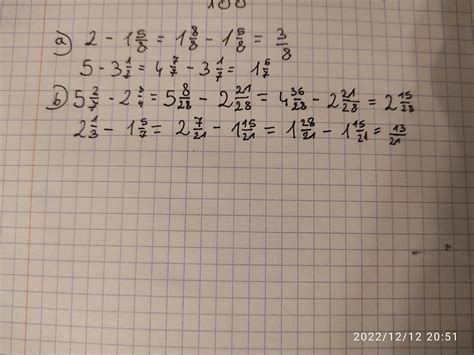 a) 2 - 1 5/8 = 1 8/8 - 1 5/8 = 3/8
5 - 3 1/7 = 4 7/7 - 3 1/7 = 1 6/7
b) 5 2/7 - 2 3/4 = 5 8/28 - 2 21/28 = 4 36/28 - 2 21/28 = 2 15/28
2 1/3 - 1 5/7 = 2 7/21 - 1 15/21 = 1 28/21 - 1 15/21 = 13/21
2022/12/12 20:51